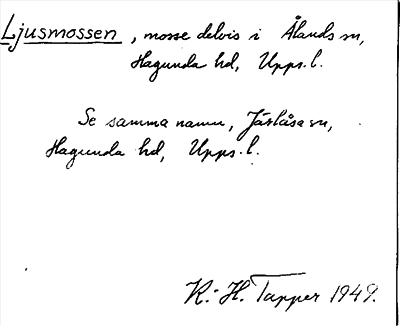 Ljusmossen, mosse delvis i Ålands sn,
Hagunda hd, Upps. l.
Se samma namn, Järlåsa sn,
Hagunda hd, Upps. l.
K.-H. Tapper 1949.